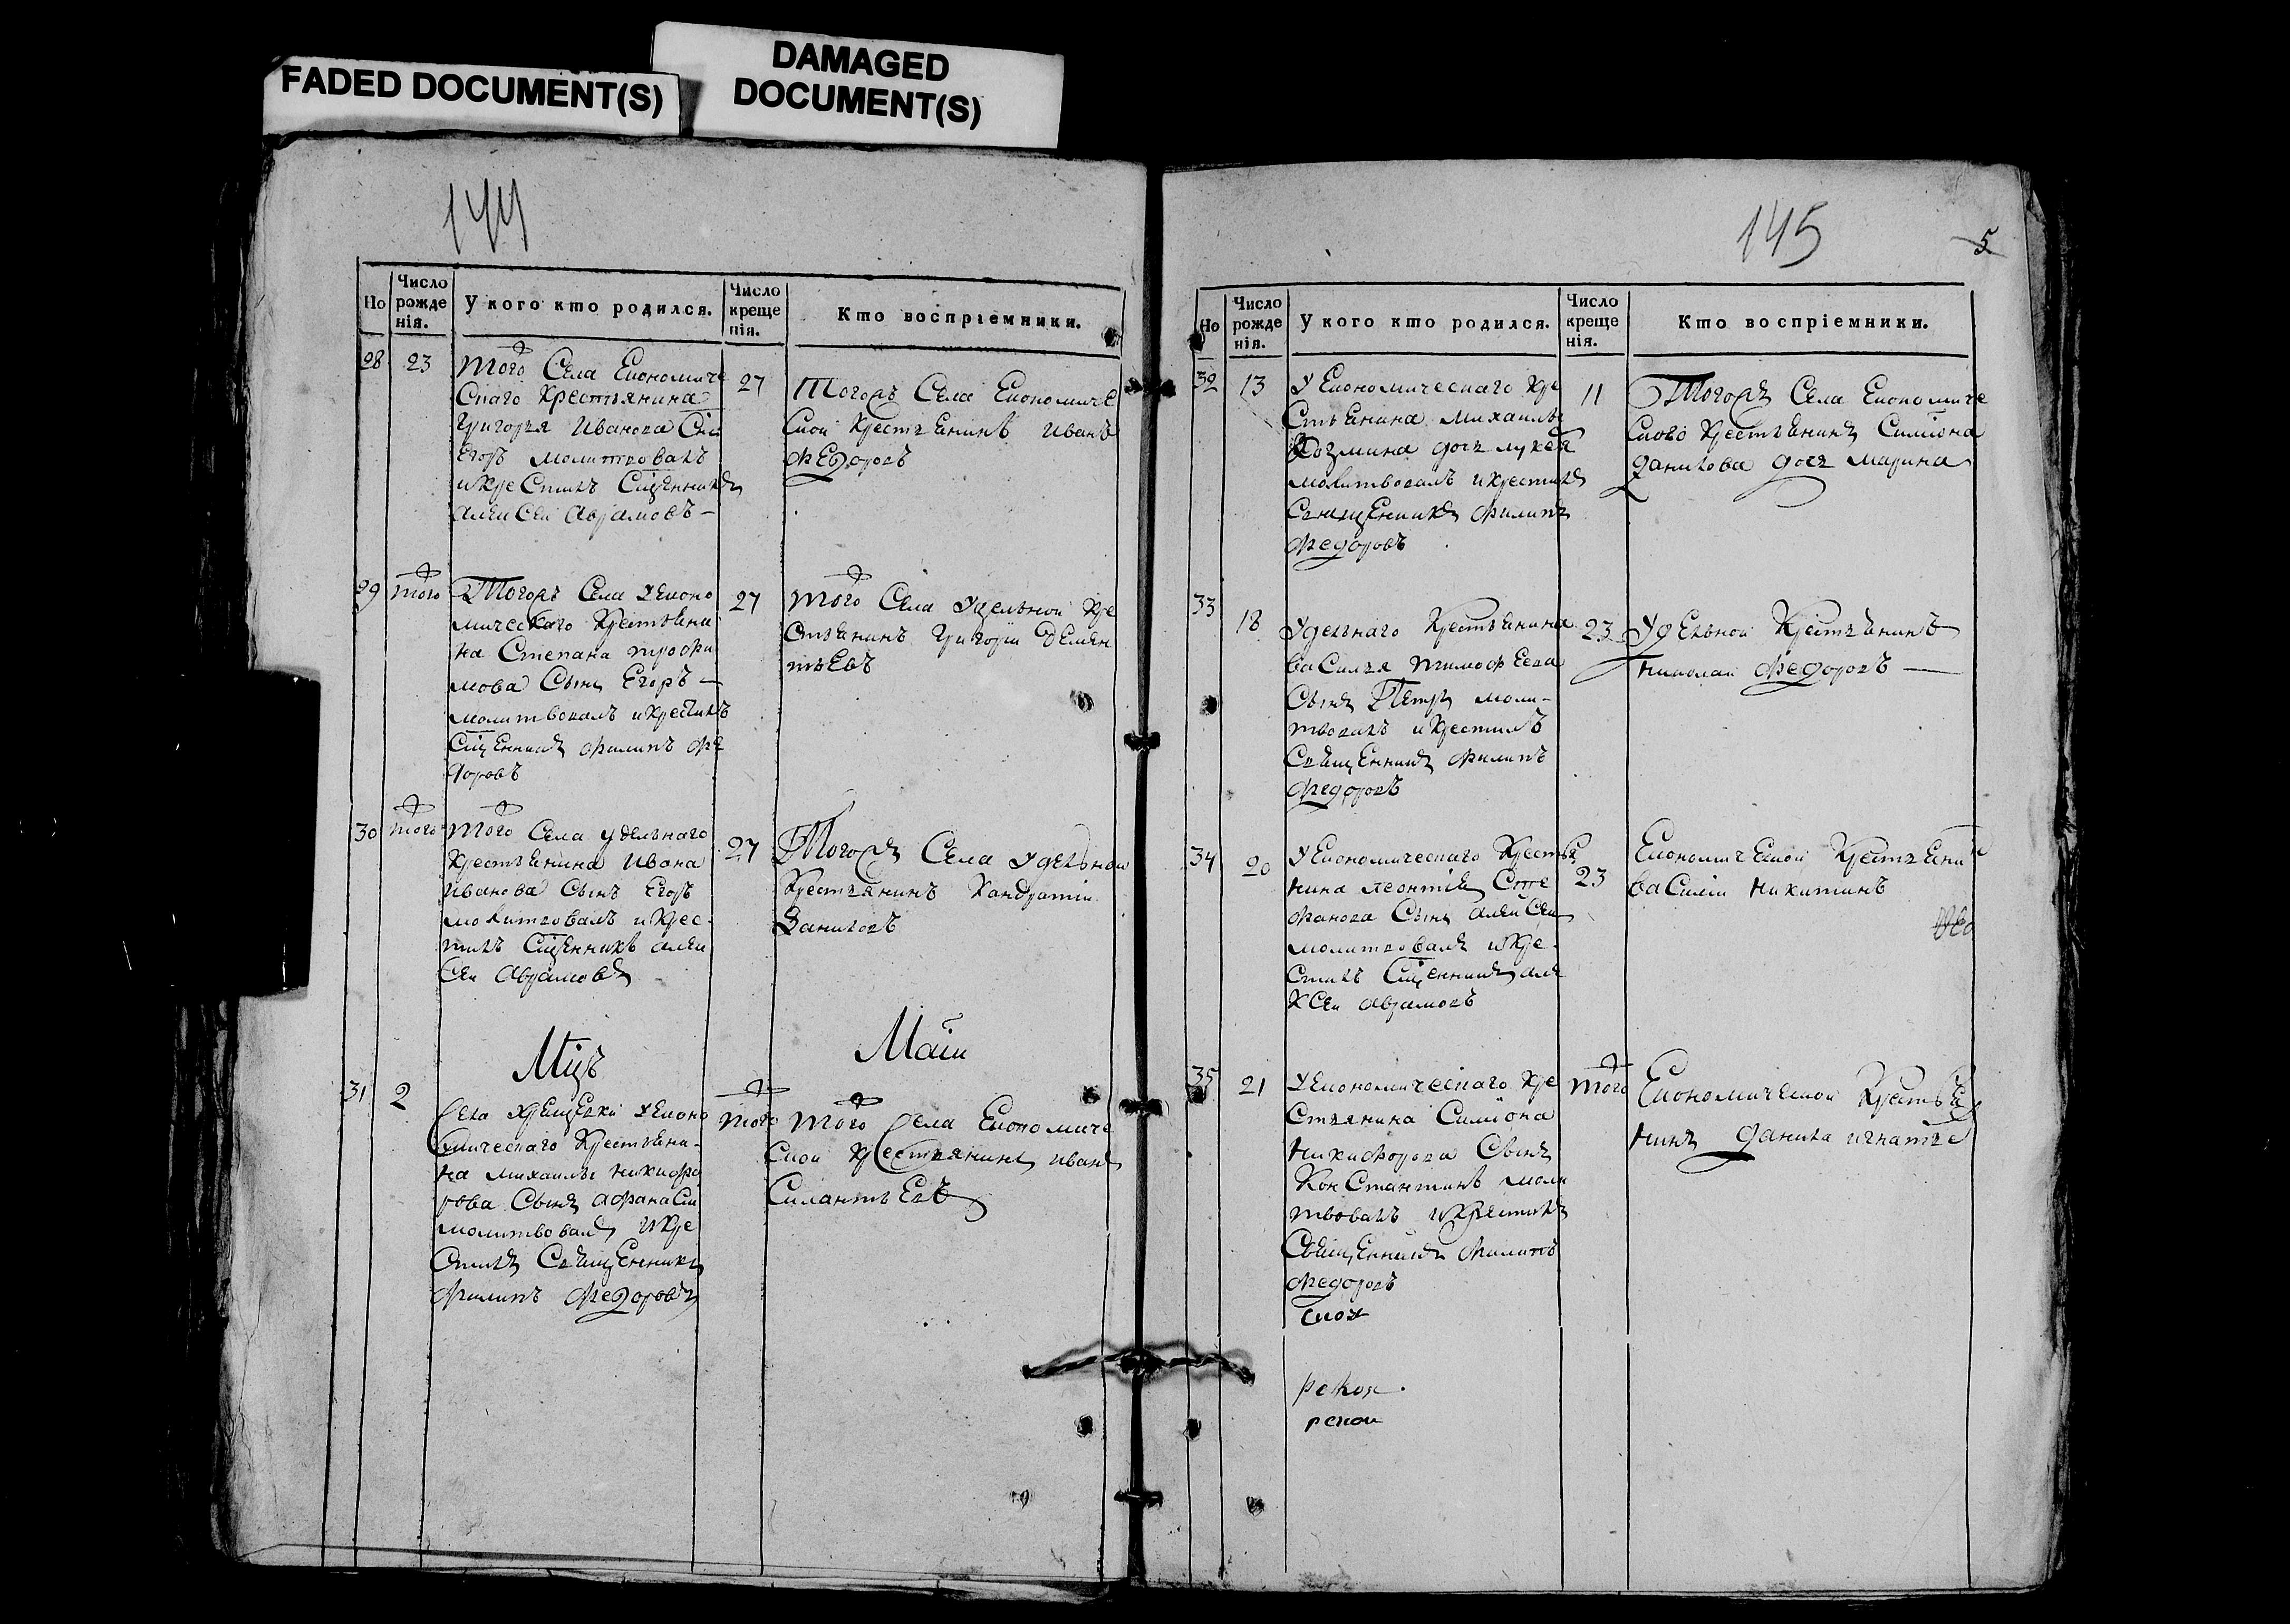 FADED DOCUMENT(S)
DAMAGED
DOCUMENT(S)
144
Но
Число рожденія.
У кого кто родился.
Число крещенія.
Кто воспріемники.
28
23
того Села Економиче
скаго Крестьянина
Григорья Иванова Снъ
Егоръ молитвовалъ
и крестилъ Сщенникъ
алексеи аврамовъ
27
Тогожъ Села Економиче
скои крестьенинъ иванъ
Федоровъ
29
того
Тогожъ Села уеконо
мическаго Крестьени
на Степана трофи
мова Сынъ Егоръ
молитвовалъ и крестилъ
Сщенникъ филипъ Фе
доровъ
27
того Села Уделнои кре
стьенинъ григореи Демен
тьевъ
30
того
того Села уделнаго
крестьенина ивана
иванова Сынъ Егоръ
молитвовалъ и крес
тилъ Сщенникъ алек
сеи аврамовъ
27
Тогожъ Села уделнои
Крестьянинъ Кандратии
Даниловъ
Мцъ
Маiи
31
2
Села Уеконо
мическаго Крестьени
на михаилы никифо
рова Сынъ афанасии
молитвовалъ и кре
стилъ Священникъ
филипъ Федоровъ
того
того Села Економиче
скои крестьянинъ иванъ
Силантьевъ
145
5
Но
Число рожденія.
У кого кто родился.
Число крещенія.
Кто воспріемники.
32
13
У Економическаго кре
стьенина михаилы
Козмина дочь лукея
молитвовалъ и крестилъ
Священникъ филипъ
Федоровъ
11
Тогожъ Села Економиче
скаго крестьенина Симиона
данилова дочь марина
33
18
Уделнаго Крестьенина
василья тимофеева
Сынъ Петръ моли
твовалъ и крестилъ
Священникъ филипъ
Федоровъ
23
Уделнои Крестьенинъ
николаи Федоровъ
34
20
У Економическаго Крестье
нина леонтия Сте
фанова Сынъ алексеи
молитвовалъ и кре
стилъ Сщенникъ але
ксеи аврамовъ
23
Економическои Крестьени
василии никитинъ
35
21
У Економическаго кре
стьянина Симиона
никифорова Сынъ
Константинъ моли
твовалъ и крестилъ
Священникъ филипъ
Федоровъ
того
Економическои Крестье
нинъ данила игнатье